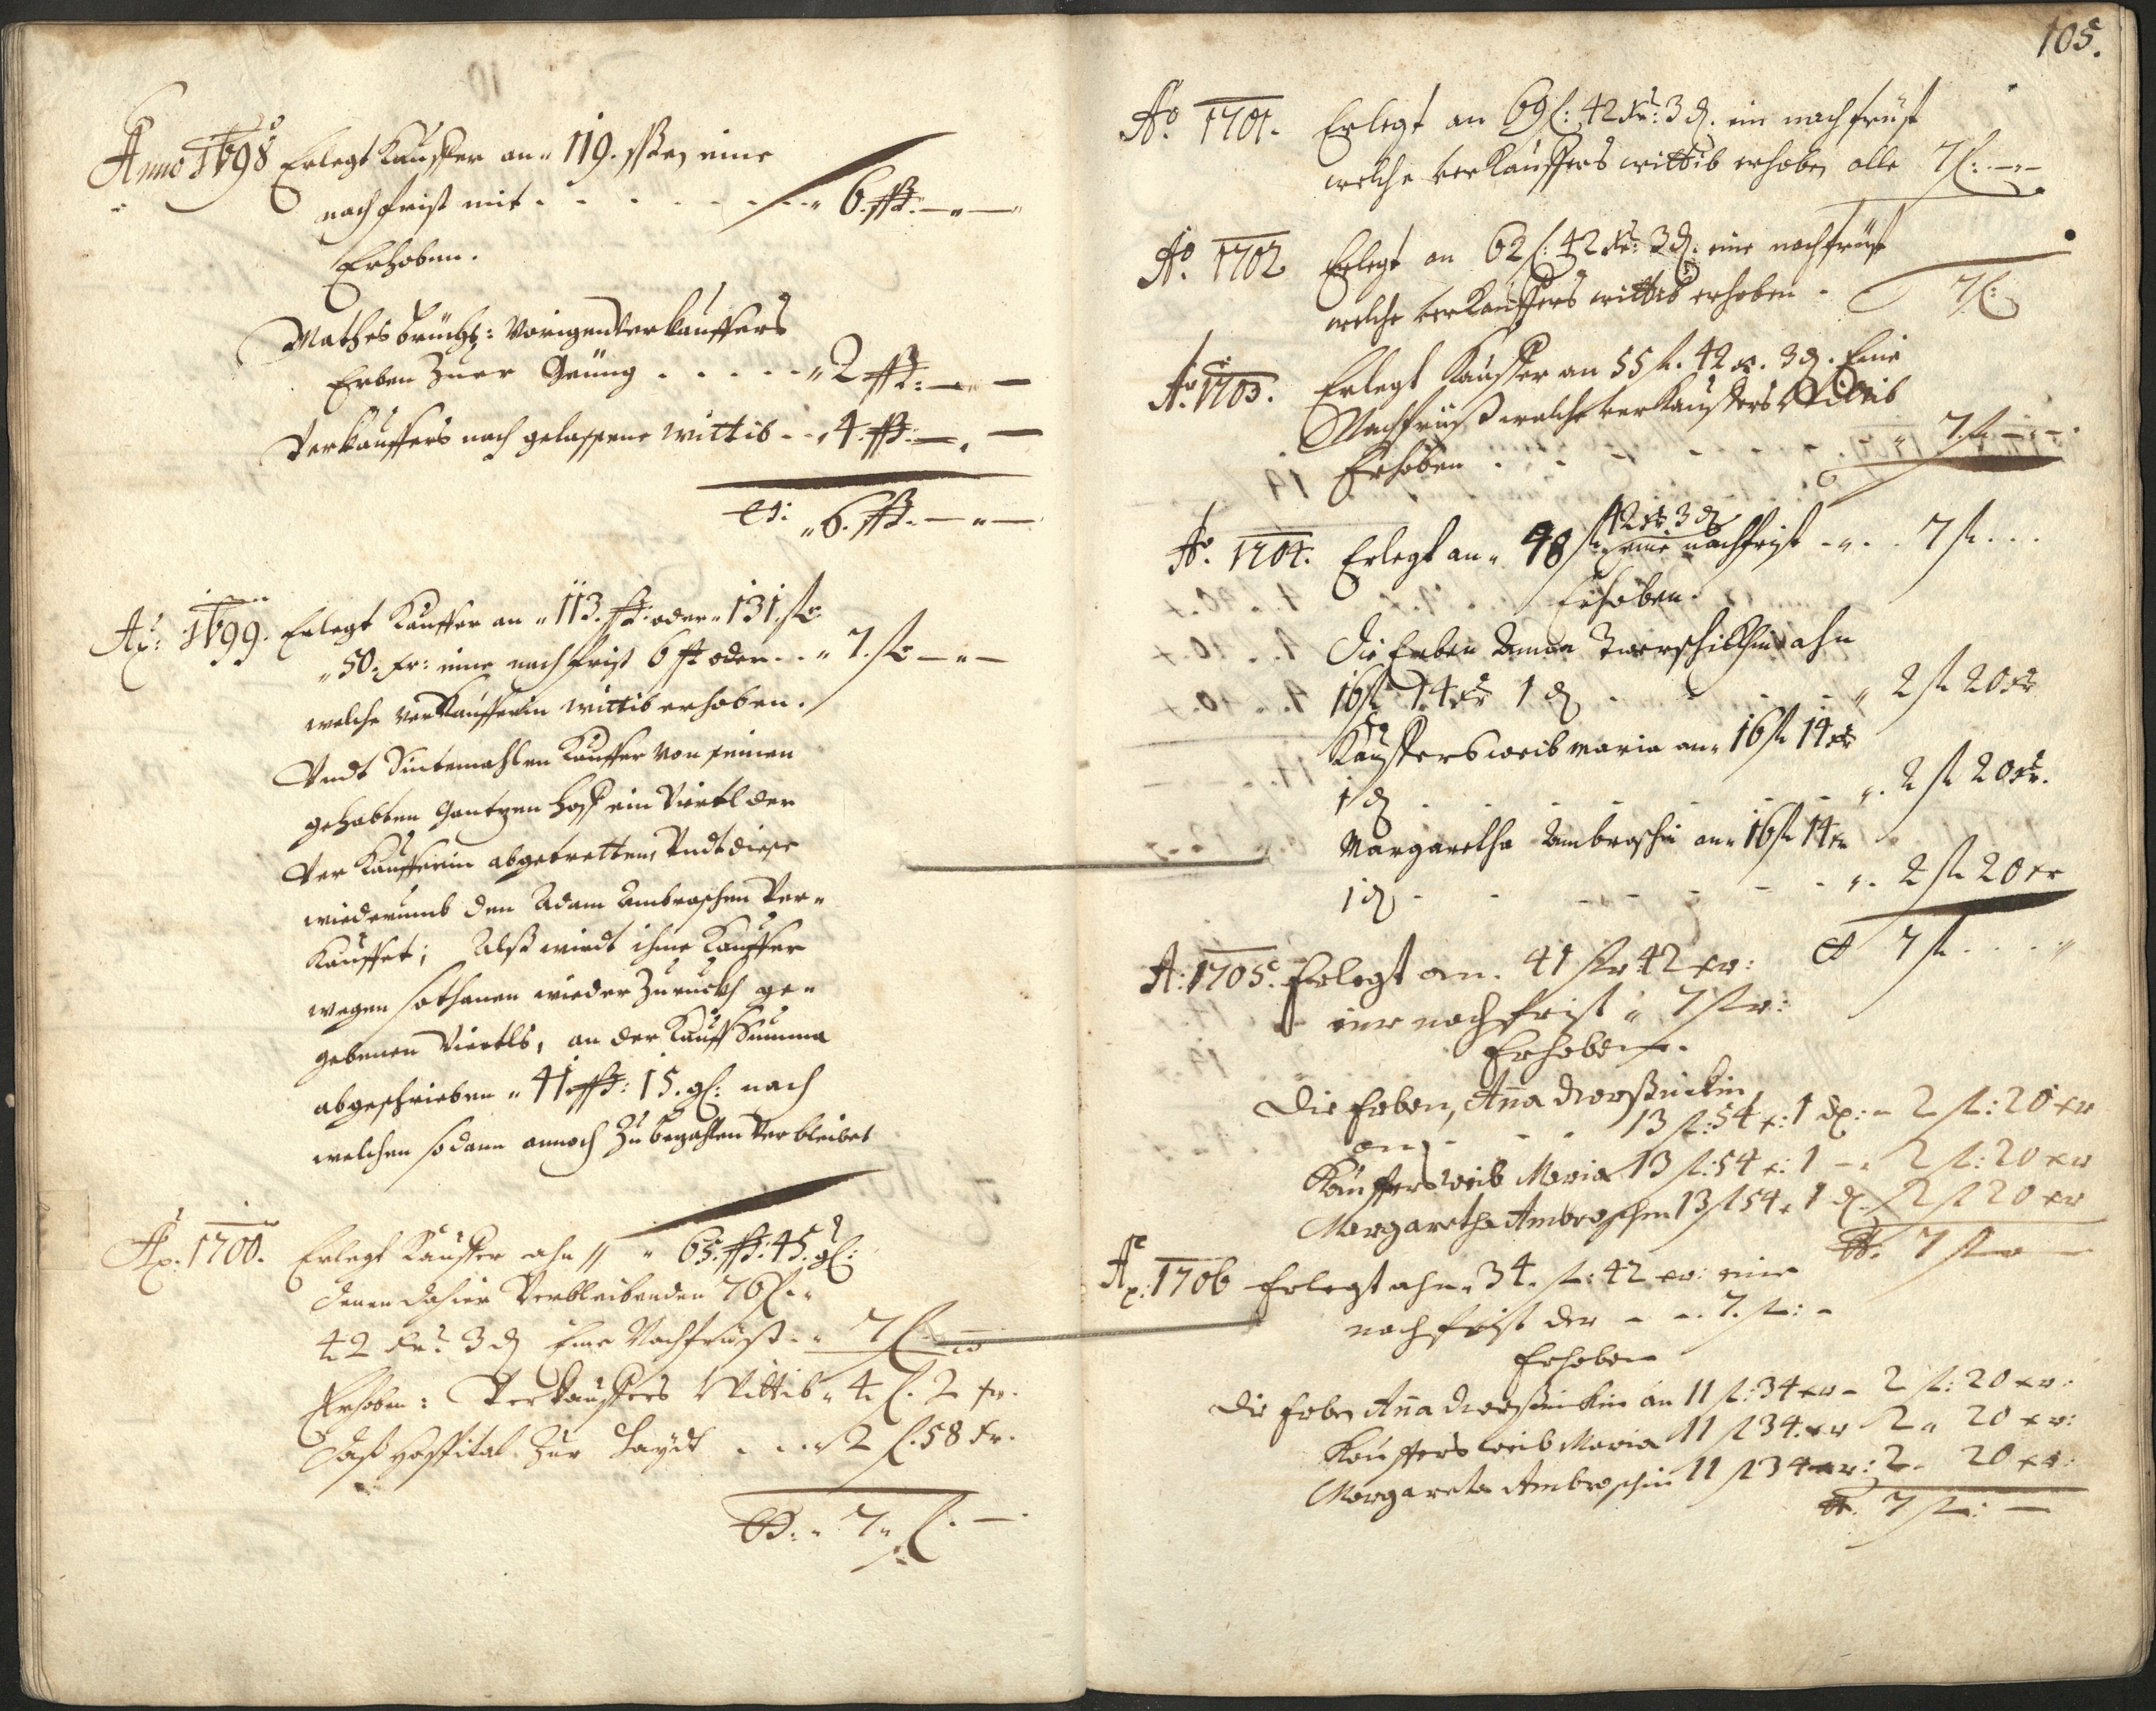 Anno 1698 Erlegt Kauffer an " 119. ßß eine
nachfrist mit . . . . . . " 6. ßß. — " —
Erhoben.
Mathes : Vorigen Verkauffers
Erben Zuer . . . . . " 2 ßß: — —
Verkauffers nach gelassene wittib . . " 4. ßß. — " —
" 6. ßß. — " —
Ao: 1699. Erlegt Kauffer an " 113. ßß oder " 131. fl
" 50. kr: eine nachfrist 6 ßß oder . . " 7. fl — " —
welche Verkaufferin wittib erhoben.
Vndt Sintemahlen Kauffer von seinen
gehabten Gantzen Hoff ein Viertl der
Verkaufferin abgetretten, Vndt diese
wiederumb den Adam Ambroschen Ver-
Kauffet; Alß wirdt ihme Kauffer
wegen sothanen wieder Zurückh ge-
gebenen Viertls, an der Kauff Summa
abgeschrieben " 41 ßß: 15. gl: nach
welchen sodann annoch Zu bezahlen Verbleibet
Ao. 1700. Erlegt Kauffer ahn " 65. ßß: 45. gl:
denen dahier Verbleibenden 76 fl. "
42 kr: 3 d Eine Nachfrist . " 7 fl —
Erhoben: Verkauffers Wittib " 4. fl. 2 kr.
Daß Hospital Zur . . " 2 fl. 58 kr.
" 7 " fl. —
105.
Ao. 1701. Erlegt an 69 fl: 42 kr: 3 d. ein nachfrist
welche verkauffers wittib erhoben alle 7 fl: —
Ao. 1702 Erlegt an 62 fl: 42 kr: 3 d. eine nachfrist
welche verkauffers wittib erhoben . 7 fl:
Ao. 1703. Erlegt Kauffer an 55 fl. 42 kr. 3 d. Eine
Nachfrist welche verkauffers Wittib
Erhoben . . . . . . " 7. fl — " —
42 kr 3 d
Ao. 1704. Erlegt an " 48 fl eine nachfrist . " . . 7 fl . . .
Erhoben.
Die Erben Anna ahn
16 fl 14 kr 1 d . . . . " 2 fl 20 kr
Kauffers weib Maria an " 16 fl 14 kr
1 d . . . . . . " 2 fl 20 kr.
Margaretha Ambroschin an " 16 fl 14 kr
1 d . . . . . . " 2 fl 20 kr
7 fl . . . . "
A: 1705. Erlegt an . 41 fl 42 kr:
eine nachfrist " 7 fl:
Erhoben.
Die Erben, Anna
an . . . 13 fl: 54 k: 1 d: - 2 fl: 20 kr
Kauffers weib Maria 13 fl: 54 k: 1 — 2 fl: 20 kr
Margaretha Ambroschin 13 fl 54 k 1 d. 2 fl 20 kr
7 fl —
Ao: 1706 Erlegt ahn " 34. fl: 42 kr: eine
nachfrist der - . 7. fl: -
Erhoben
die Erben Anna an 11 fl: 34 kr - 2 fl: 20 kr:
Kauffers weib Maria 11 fl 34. kr 2 " 20 kr:
Margareta Ambroschin 11 fl 34 kr: 2 " 20 kr:
7 fl: —